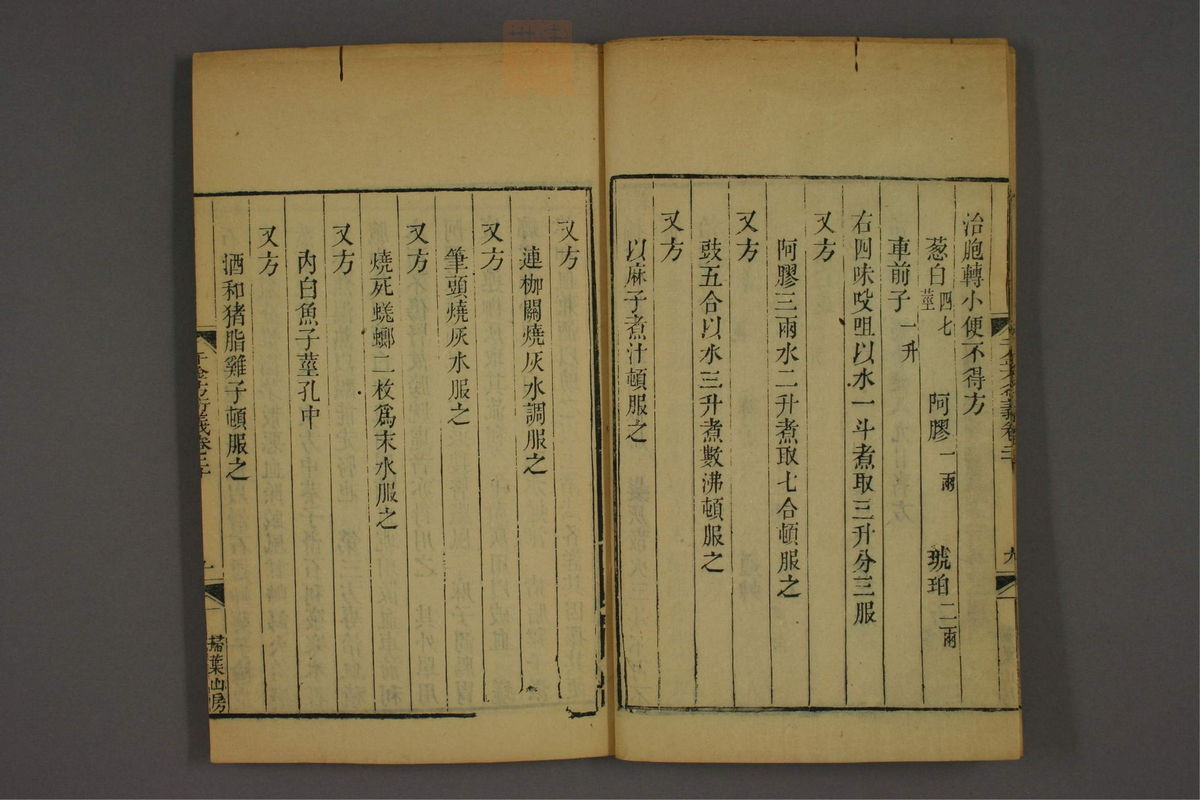 治胞轉小便不得方
葱白四七莖 阿膠一兩 琥珀二兩
車前子一升
右四味㕮咀以水一斗煮取三升分三服
又方
阿膠三兩水二升煮取七合頓服之
又方
豉五合以水三升煮數沸頓服之
又方
以麻子煮汁頓服之
又方
連枷關燒灰水調服之
又方
筆頭燒灰水服之
又方
燒死蜣蜋二枚爲末水服之
又方
内白魚子莖孔中
又方
酒和猪脂雞子頓服之
千金方衍義卷二十
掃葉山房